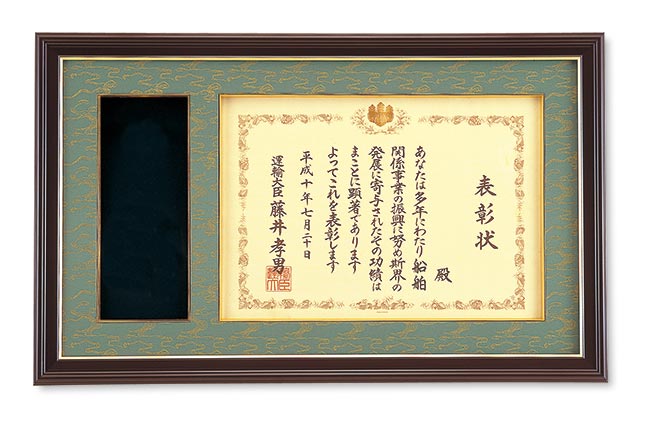 表彰状
殿
あなたは多年にわたり船舶
関係事業の振興に努め斯界の
発展に寄与されたその功績は
まことに顕著であります
よってこれを表彰します
平成十年七月二十日
運輸大臣 藤井孝男